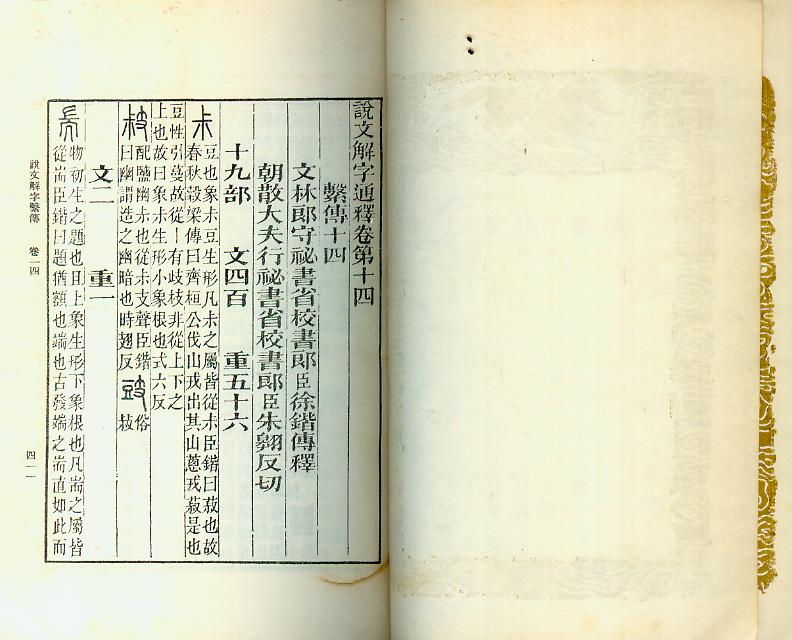 說文解字通釋卷第十四
繫傳十四
文林郎守祕書省校書郎臣徐鍇傳釋
朝散大夫行祕書省校書郎臣朱翱反切
十九部 文四百 重五十六
尗 豆也象尗豆生形凡尗之屬皆從尗臣鍇曰菽也故
春秋穀梁傳曰齊桓公伐山戎出其山蔥戎菽是也
豆性引蔓故從丨有歧枝非從上下之
上也故曰象尗生形小象根也式六反
配鹽幽尗也從尗支聲臣鍇
曰幽謂造之幽暗也時翅反 豉 俗
文二 重一
耑 物初生之題也且上象生形下象根也凡耑之屬皆
從耑臣鍇曰題猶額也端也古發端之耑直如此而
說文解字繫傳 卷一四
四一一